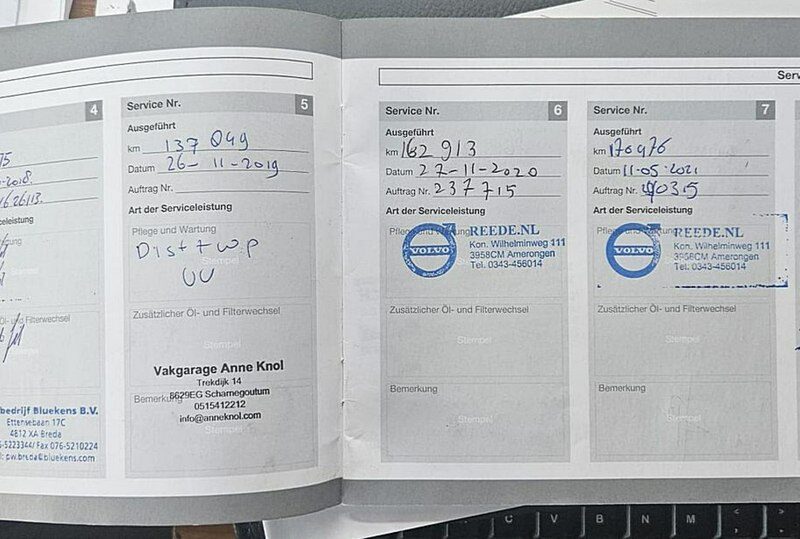 4
75
-2018
16.26113.
Serviceleistung
bedrijf Bluekens B.V.
Ettensebaan 17C
4812 XA Breda
6-5223344/ Fax 076-5210224
l: pw.breda@bluekens.com
Service Nr. 5
Ausgeführt
km 137 049
Datum 26-11-2019
Auftrag Nr.
Art der Serviceleistung
Pflege und Wartung
Dist + W.p
Stempel
UU
Zusätzlicher Öl- und Filterwechsel
Stempel
Vakgarage Anne Knol
Trekdijk 14
Bemerkung 8629EG Scharnegoutum
0515412212
info@anneknol.com
Stempel
Serv
Service Nr. 6
Ausgeführt
km 162 913
Datum 27-11-2020
Auftrag Nr. 237715
Art der Serviceleistung
REEDE.NL
VOLVO
Kon. Wilhelminweg 111
3958CM Amerongen
Tel. 0343-456014
Zusätzlicher Öl- und Filterwechsel
Stempel
Bemerkung
Stempel
Service Nr. 7
Ausgeführt
km 170976
Datum 11-05-2021
Auftrag Nr.
Art der Serviceleistung
REEDE.NL
VOLVO
Kon. Wilhelminweg 111
3958CM Amerongen
Tel. 0343-456014
Zusätzlicher Öl- und Filterwechsel
Stempel
Bemerkung
Stempel
C V B N M < >